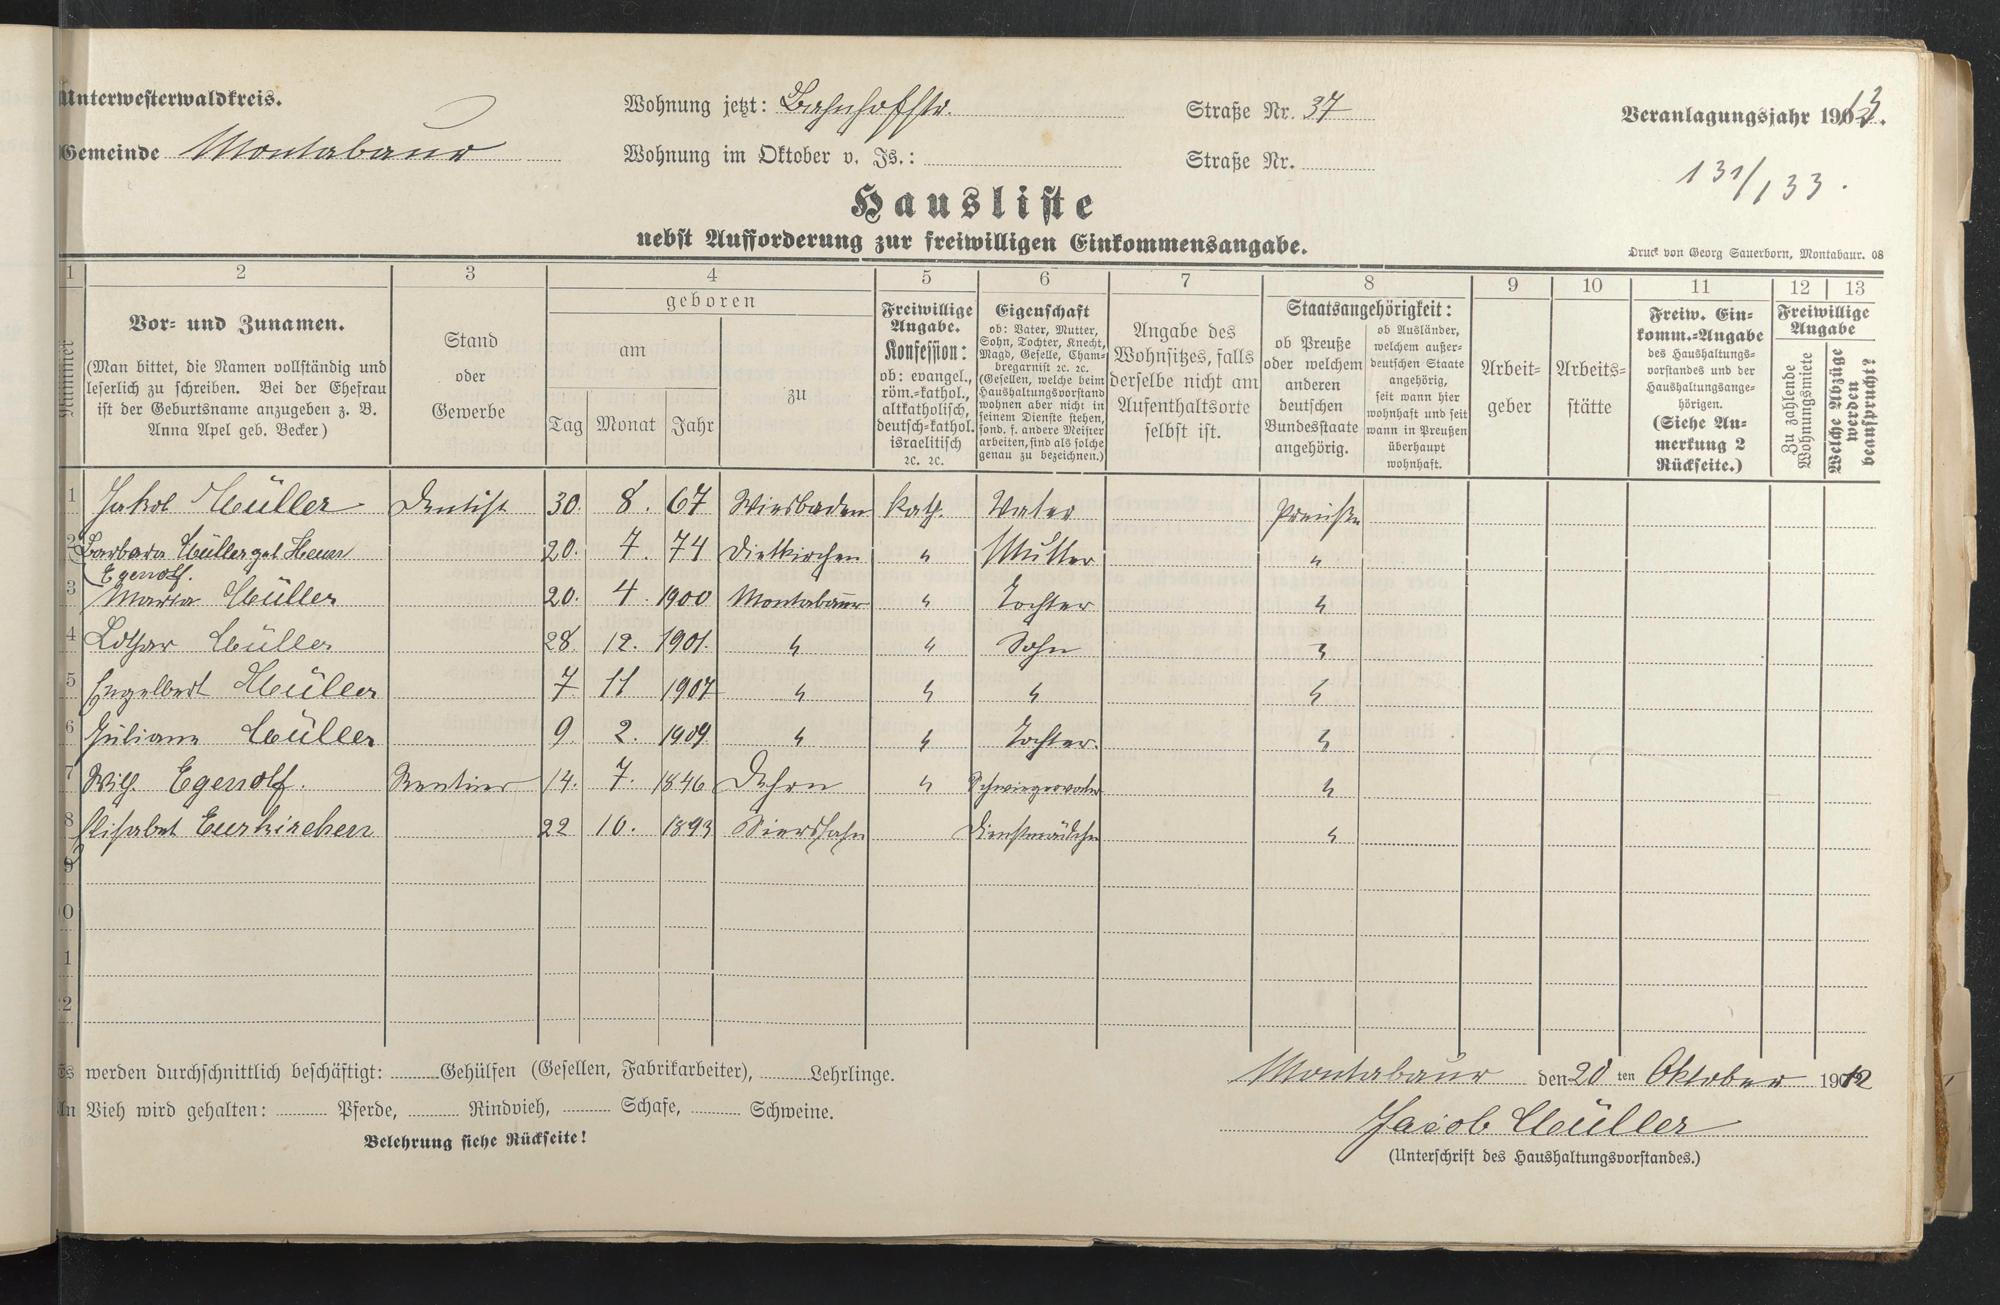 Unterwesterwaldkreis.
Wohnung jetzt: Bahnhofstr. Straße Nr. 37
Veranlagungsjahr 1913.
Gemeinde Montabaur
Wohnung im Oktober v. Js.: Straße Nr.
131/133.
Hausliste
nebst Aufforderung zur freiwilligen Einkommensangabe.
Druck von Georg Sauerborn, Montabaur. 08
1 2 3 4 5 6 7 8 9 10 11 12 13
Nummer
Vor- und Zunamen.
(Man bittet, die Namen vollständig und
leserlich zu schreiben. Bei der Ehefrau
ist der Geburtsname anzugeben z. B.
Anna Apel geb. Becker)
Stand
oder
Gewerbe
geboren
am
Tag Monat Jahr
zu
Freiwillige
Angabe.
Konfession:
ob: evangel.,
röm.-kathol.,
altkatholisch,
deutsch-kathol.
israelitisch
ꝛc. ꝛc.
Eigenschaft
ob: Vater, Mutter,
Sohn, Tochter, Knecht,
Magd, Geselle, Cham-
bregarnist ꝛc. ꝛc.
(Gesellen, welche beim
Haushaltungsvorstand
wohnen aber nicht in
seinem Dienste stehen,
sond. f. andere Meister
arbeiten, sind als solche
genau zu bezeichnen.)
Angabe des
Wohnsitzes, falls
derselbe nicht am
Aufenthaltsorte
selbst ist.
Staatsangehörigkeit:
ob Preuße
oder welchem
anderen
deutschen
Bundesstaate
angehörig.
ob Ausländer,
welchem außer-
deutschen Staate
angehörig,
seit wann hier
wohnhaft und seit
wann in Preußen
überhaupt
wohnhaft.
Arbeit-
geber
Arbeits-
stätte
Freiw. Ein-
komm.-Angabe
des Haushaltungs-
vorstandes und der
Haushaltungsange-
hörigen.
(Siehe An-
merkung 2
Rückseite.)
Freiwillige
Angabe
Zu zahlende
Wohnungsmiete
Welche Abzüge
werden
beansprucht?
1 Jakob Müller Dentist 30. 8. 67 Wiesbaden kath. Vater Preuße
2 Barbara Müller geb. Egenolf. 20. 7. 74 Dietkirchen " Mutter "
3 Maria Müller 20. 4. 1900 Montabaur " Tochter "
4 Lothar Müller 28. 12. 1901. " " Sohn "
5 Engelbert Müller 7 11 1907 " " " "
6 Juliane Müller 9. 2. 1909 " " Tochter. "
7 Wilh. Egenolf. Rentner 14. 7. 1846 Dehrn " Schwiegervater "
8 Elisabet Eurkirchen 22 10. 1893 Siershahn Dienstmädchen "
9
0
1
2
s werden durchschnittlich beschäftigt: Gehülfen (Gesellen, Fabrikarbeiter), Lehrlinge.
An Vieh wird gehalten: Pferde, Rindvieh, Schafe, Schweine.
Belehrung siehe Rückseite!
Montabaur den 20 ten Oktober 1912
Jacob Müller
(Unterschrift des Haushaltungsvorstandes.)